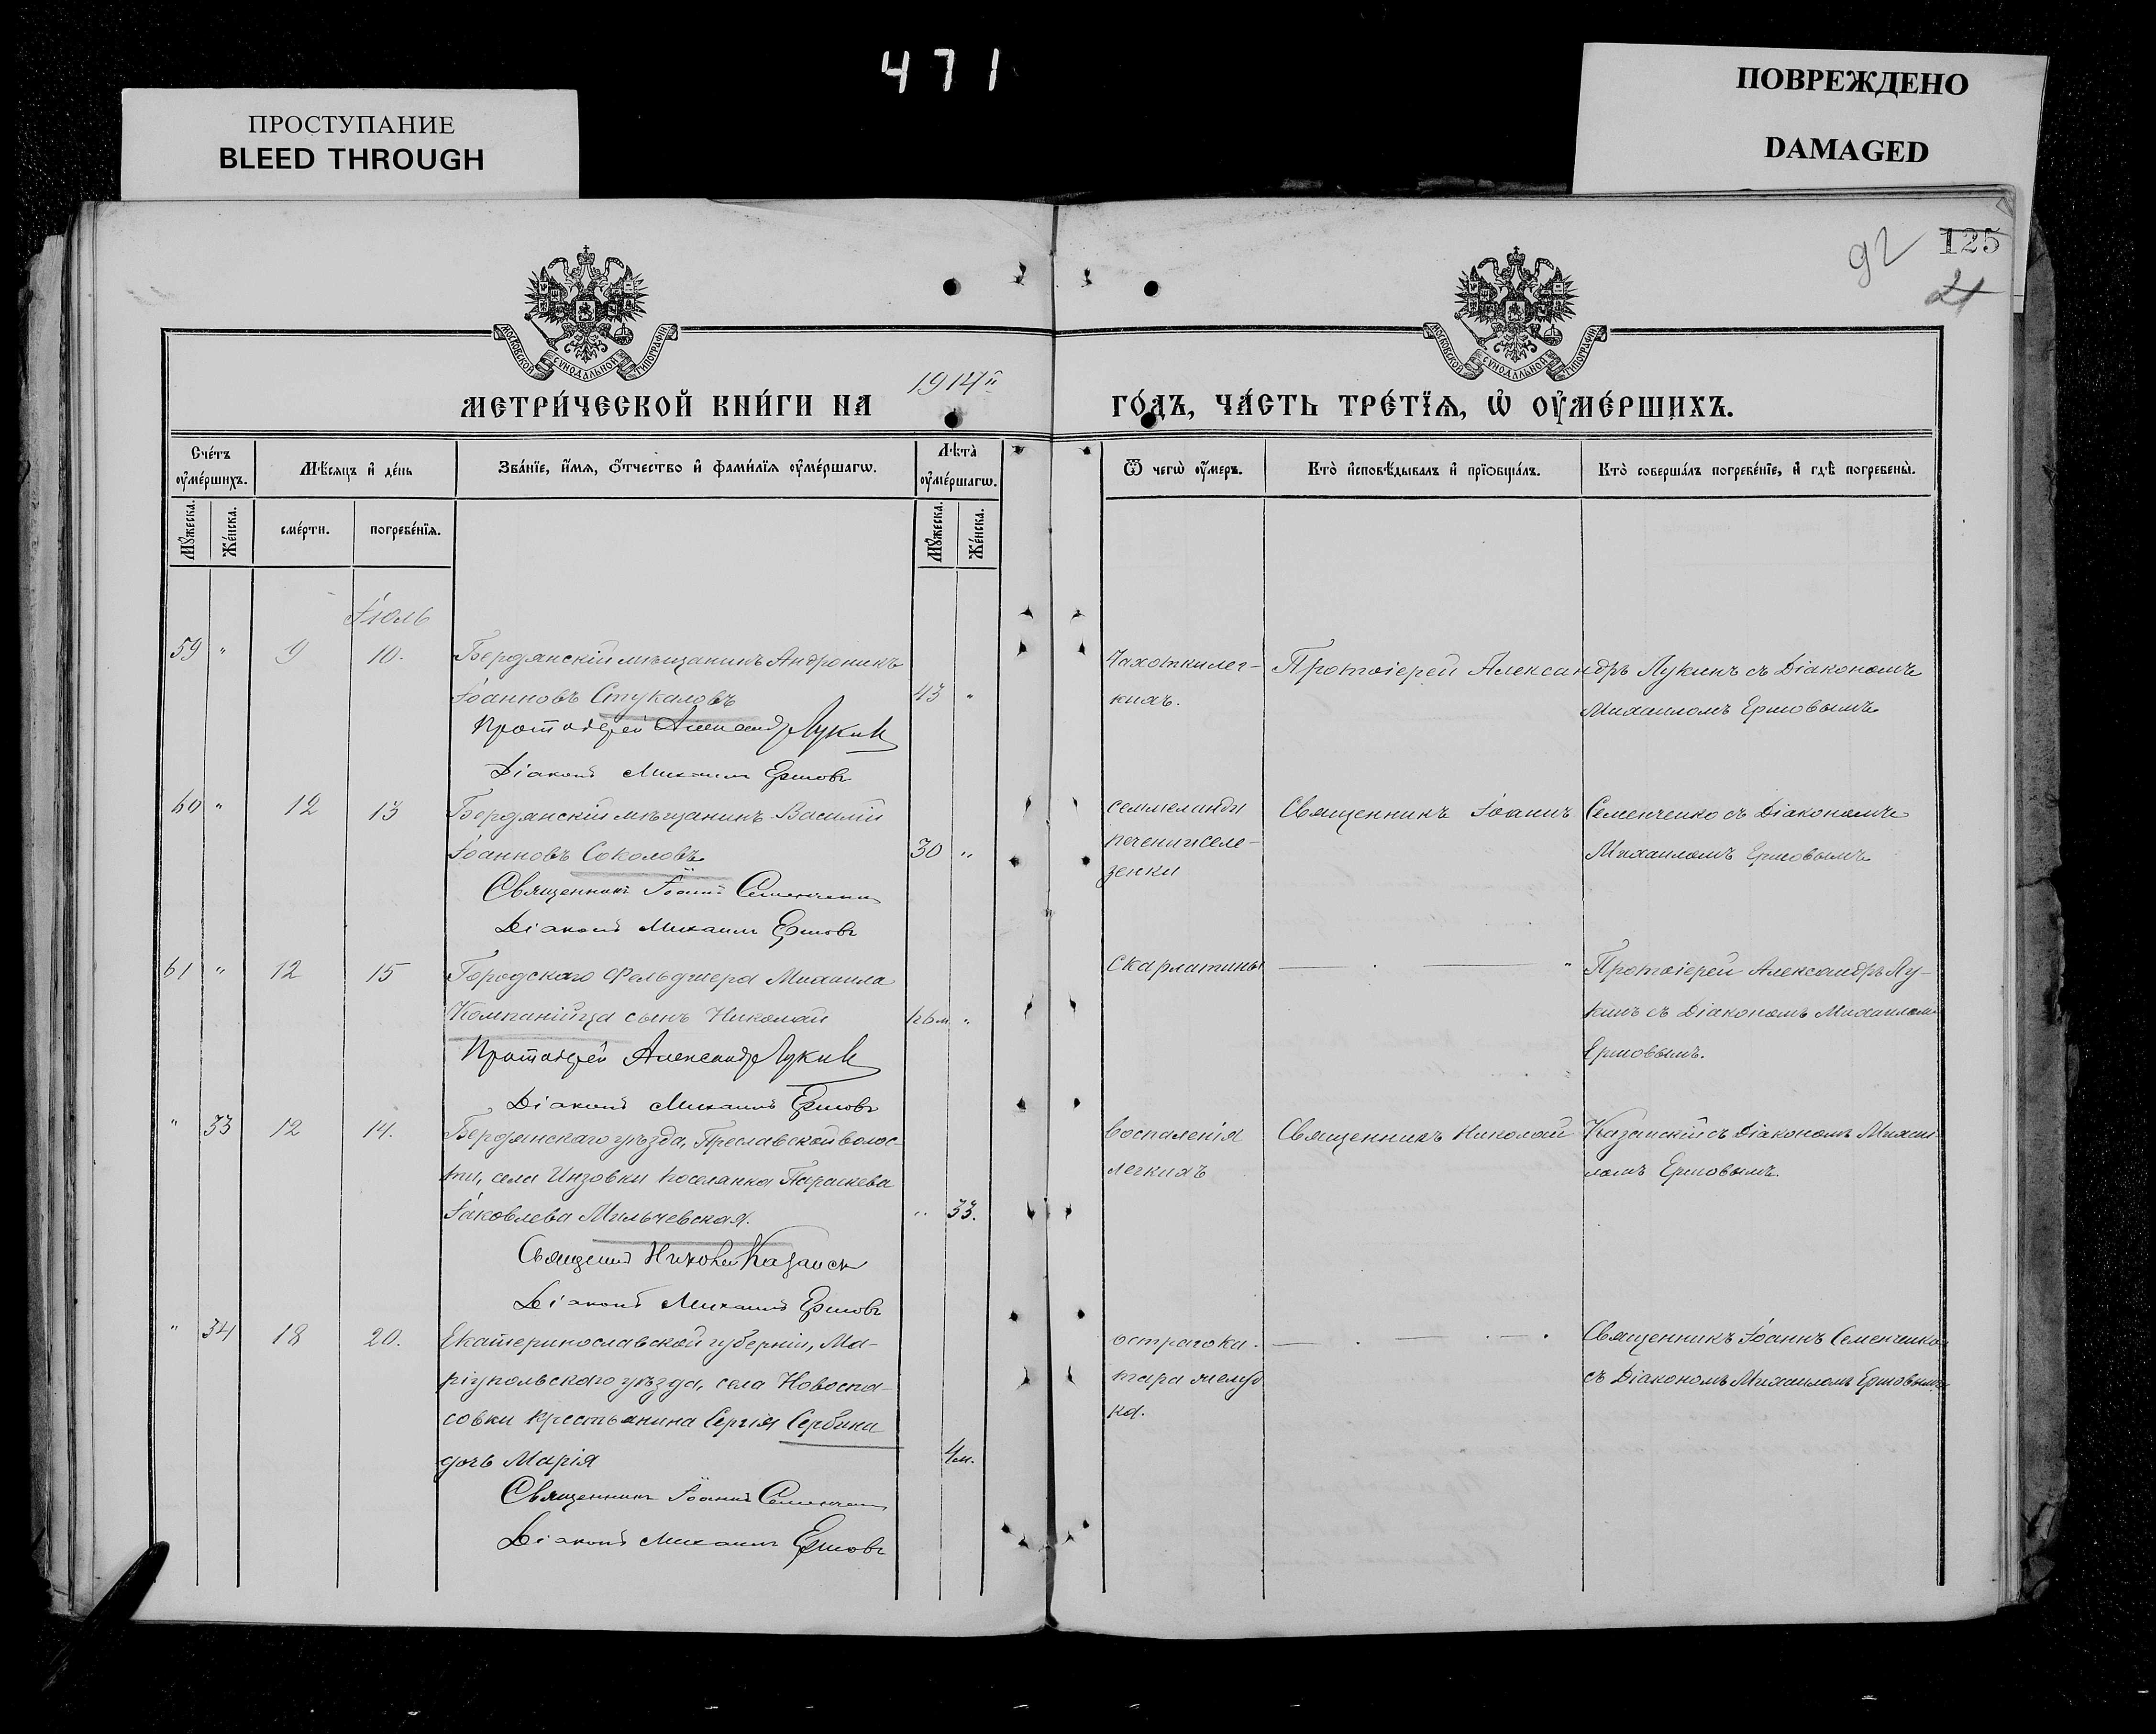 471
ПРОСТУПАНИЕ
BLEED THROUGH
ПОВРЕЖДЕНО
DAMAGED
92
125
МОСКОВСКОЙ СУНОДАЛЬНОЙ ТИПОГРАФІИ
МОСКОВСКОЙ СУНОДАЛЬНОЙ ТИПОГРАФІИ
МЕТРИ́ЧЕСКОЙ КНИ́ГИ НА 1914й ГО́ДЪ, ЧА́СТЬ ТРЕ́ТЇѦ, Ѡ҆ ОУ҆МЕ́РШИХЪ.
Сче́тъ оу҆ме́ршихъ.
Мѣ́сяцъ и҆ де́нь
Зва́нїе, и҆́мя, ѻ҆́тчество и҆ фами́лїя оу҆ме́ршагѡ.
Лѣ́та оу҆ме́ршагѡ.
Ѿ чегѡ̀ оу҆́меръ.
Кто̀ и҆сповѣ́дывалъ и҆ прїѻбща́лъ.
Кто̀ соверша́лъ погребе́нїе, и҆ гдѣ̀ погребены̀.
Му́жеска.
Же́нска.
сме́рти.
погребе́нїя.
Му́жеска.
Же́нска.
Іюль
59 " 9 10. Бердянскій мѣщанинъ Андроникъ
Іоанновъ Стукаловъ 43 "
Протоіерей Александръ Лукинъ
Діаконъ Михаилъ Ершовъ
Чахотки лег-
кихъ.
Протоіерей Александръ Лукинъ съ Діакономъ
Михаиломъ Ершовымъ
60 " 12 13 Бердянскій мѣщанинъ Василій
Іоанновъ Соколовъ 30 "
Священникъ Іоаннъ Семенченко
Діаконъ Михаилъ Ершовъ
печени и селе-
зенки
Священникъ Іоаннъ Семенченко съ Діакономъ
Михаиломъ Ершовымъ
61 " 12 15 Городского Фельдшера Михаила
Компанійца сынъ Николай "
Протоіерей Александръ Лукинъ
Діаконъ Михаилъ Ершовъ
Скарлатины
— . — "
Протоіерей Александръ Лу-
кинъ съ Діакономъ Михаиломъ
Ершовымъ.
" 33 12 14. Бердянскаго уѣзда, Преславской волос-
ти, села Инзовки поселянка Параскева
Іаковлева Мильчевская. " 33.
Священникъ Николай Казанскій
Діаконъ Михаилъ Ершовъ
Воспаленія
легкихъ
Священникъ Николай Казанскій съ Діакономъ Михаи-
ломъ Ершовымъ.
" 34 18 20. Екатеринославской губерніи, Ма-
ріупольскаго уѣзда, села Новоспа-
совки крестьянина Сергія Сербина
дочь Марія 4 м.
Священникъ Іоаннъ Семенченко
Діаконъ Михаилъ Ершовъ
остраго ка-
тара желуд
ка.
— . — . — .
Священникъ Іоаннъ Семенченко
съ Діакономъ Михаиломъ Ершовымъ